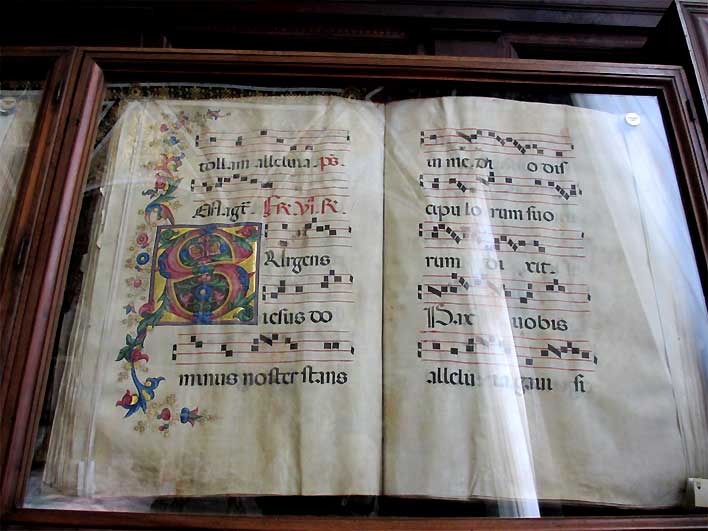 tollam alleluia. ps.
Magt. FR. VI. R.
SUrgens
iesus do
minus noster stans
in me di o dis
cipu lo rum suo
rum di xit.
Pax uobis
allelu ia gaui si